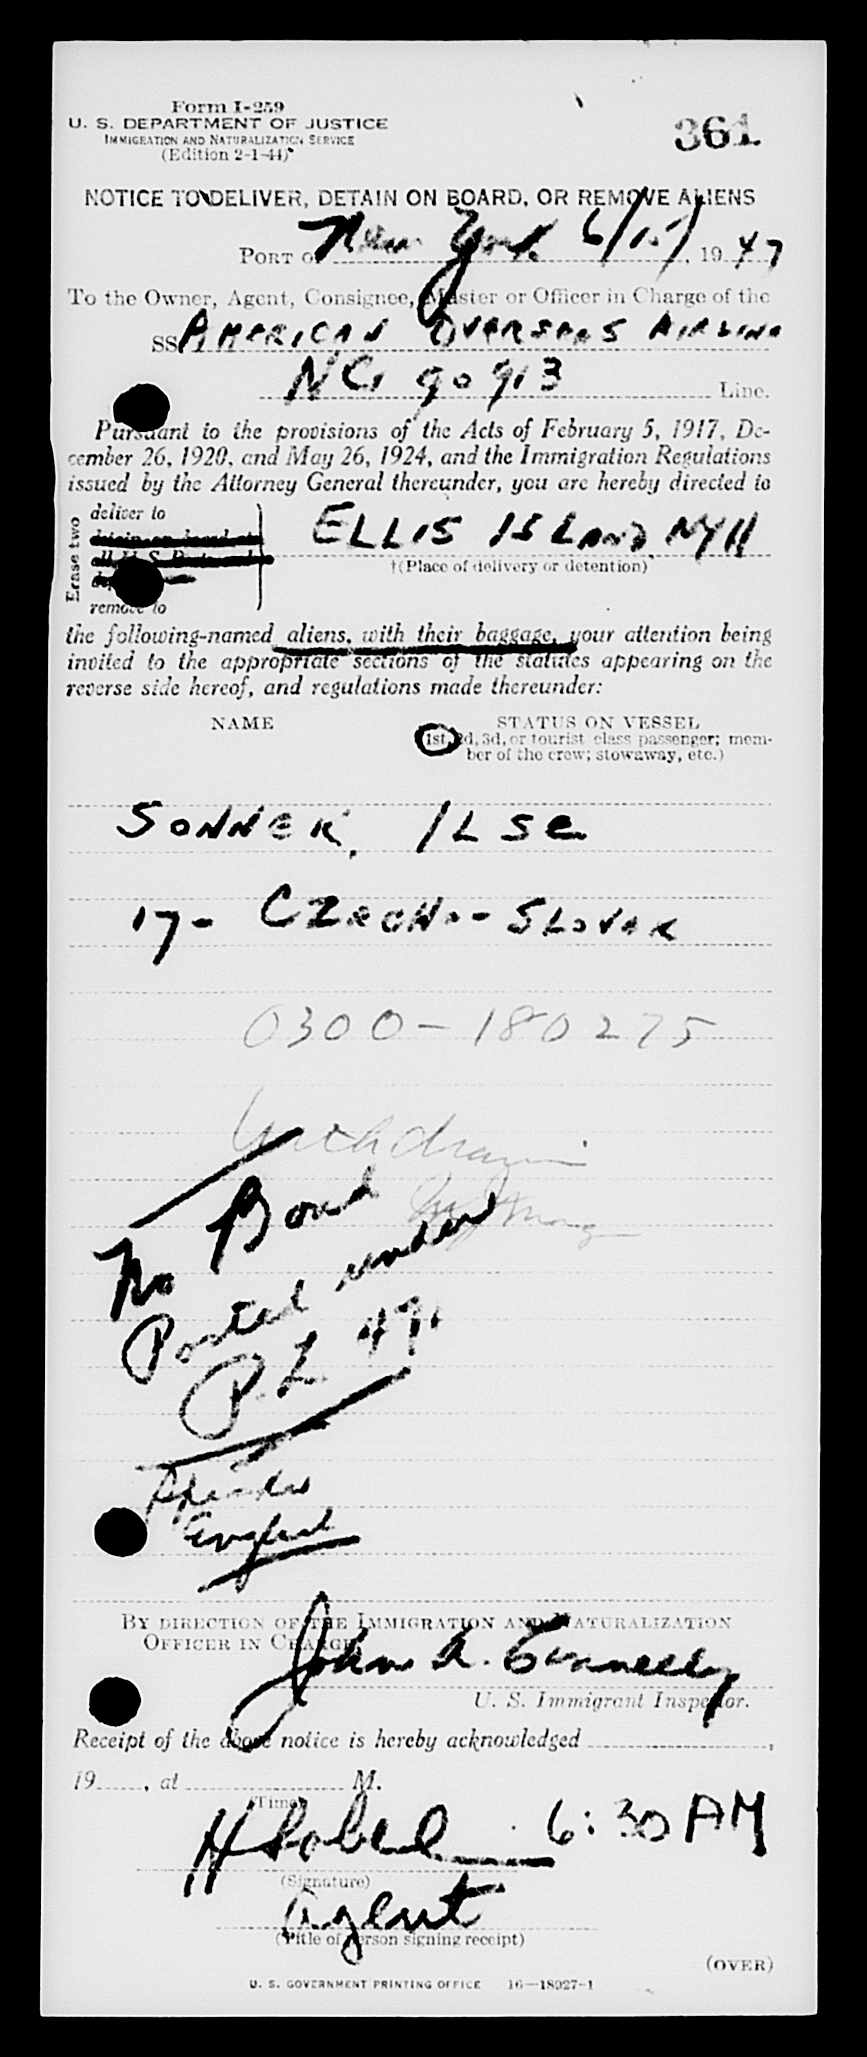 Form I-259
U. S. DEPARTMENT OF JUSTICE
IMMIGRATION AND NATURALIZATION SERVICE
(Edition 2-1-44)
361
NOTICE TO DELIVER, DETAIN ON BOARD, OR REMOVE ALIENS
PORT OF New York 6/15/ 1947
To the Owner, Agent, Consignee, Master or Officer in Charge of the
SS AMERICAN OVERSEAS AIRLINE
NC, 90913 Line.
Pursuant to the provisions of the Acts of February 5, 1917, De-
cember 26, 1920, and May 26, 1924, and the Immigration Regulations
issued by the Attorney General thereunder, you are hereby directed to
Erase two
deliver to
detain on board at
remove to
ELLIS ISLAND NYH
†(Place of delivery or detention)
the following-named aliens, with their baggage, your attention being
invited to the appropriate sections of the statutes appearing on the
reverse side hereof, and regulations made thereunder:
NAME STATUS ON VESSEL
(1st, 2d, 3d, or tourist class passenger; mem-
ber of the crew; stowaway, etc.)
SONNEK, ILSE
17- CZECHO-SLOVAK
0300-180275
Withdrawn
No Bond
Posted under
P.L. 471
Speaks
English
BY DIRECTION OF THE IMMIGRATION AND NATURALIZATION
OFFICER IN CHARGE,
John A. Connelly
U. S. Immigrant Inspector.
Receipt of the above notice is hereby acknowledged ,
19 , at M.
(Time)
H Sobel 6:30 AM
(Signature)
Agent
(Title of person signing receipt)
(OVER)
U. S. GOVERNMENT PRINTING OFFICE 16—18027-1